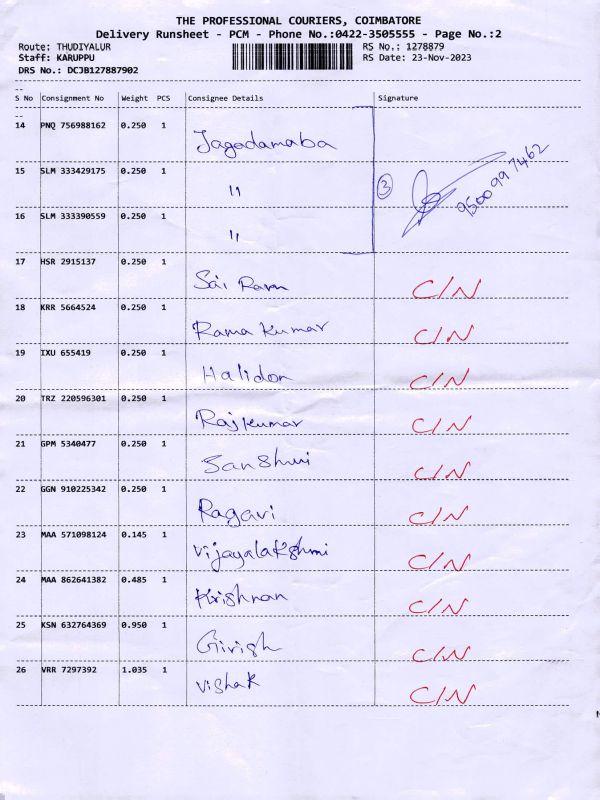 THE PROFESSIONAL COURIERS, COIMBATORE
Delivery Runsheet - PCM - Phone No.:0422-3505555 - Page No.:2
Route: THUDIYALUR RS No.: 1278879
Staff: KARUPPU RS Date: 23-Nov-2023
DRS No.: DCJB127887902
S No Consignment No Weight PCS Consignee Details Signature
14 PNQ 756988162 0.250 1 Jagadamaba
15 SLM 333429175 0.250 1 " 3 9500997462
16 SLM 333390559 0.250 1 "
17 HSR 2915137 0.250 1 Sai Ram C/N
18 KRR 5664524 0.250 1 Rama Kumar C/N
19 IXU 655419 0.250 1 Halidon C/N
20 TRZ 220596301 0.250 1 Rajkumar C/N
21 GPM 5340477 0.250 1 Sanshwi C/N
22 GGN 910225342 0.250 1 Ragavi C/N
23 MAA 571098124 0.145 1 Vijayalakshmi C/N
24 MAA 862641382 0.485 1 Krishnan C/N
25 KSN 632764369 0.950 1 Girish C/N
26 VRR 7297392 1.035 1 Vishak C/N